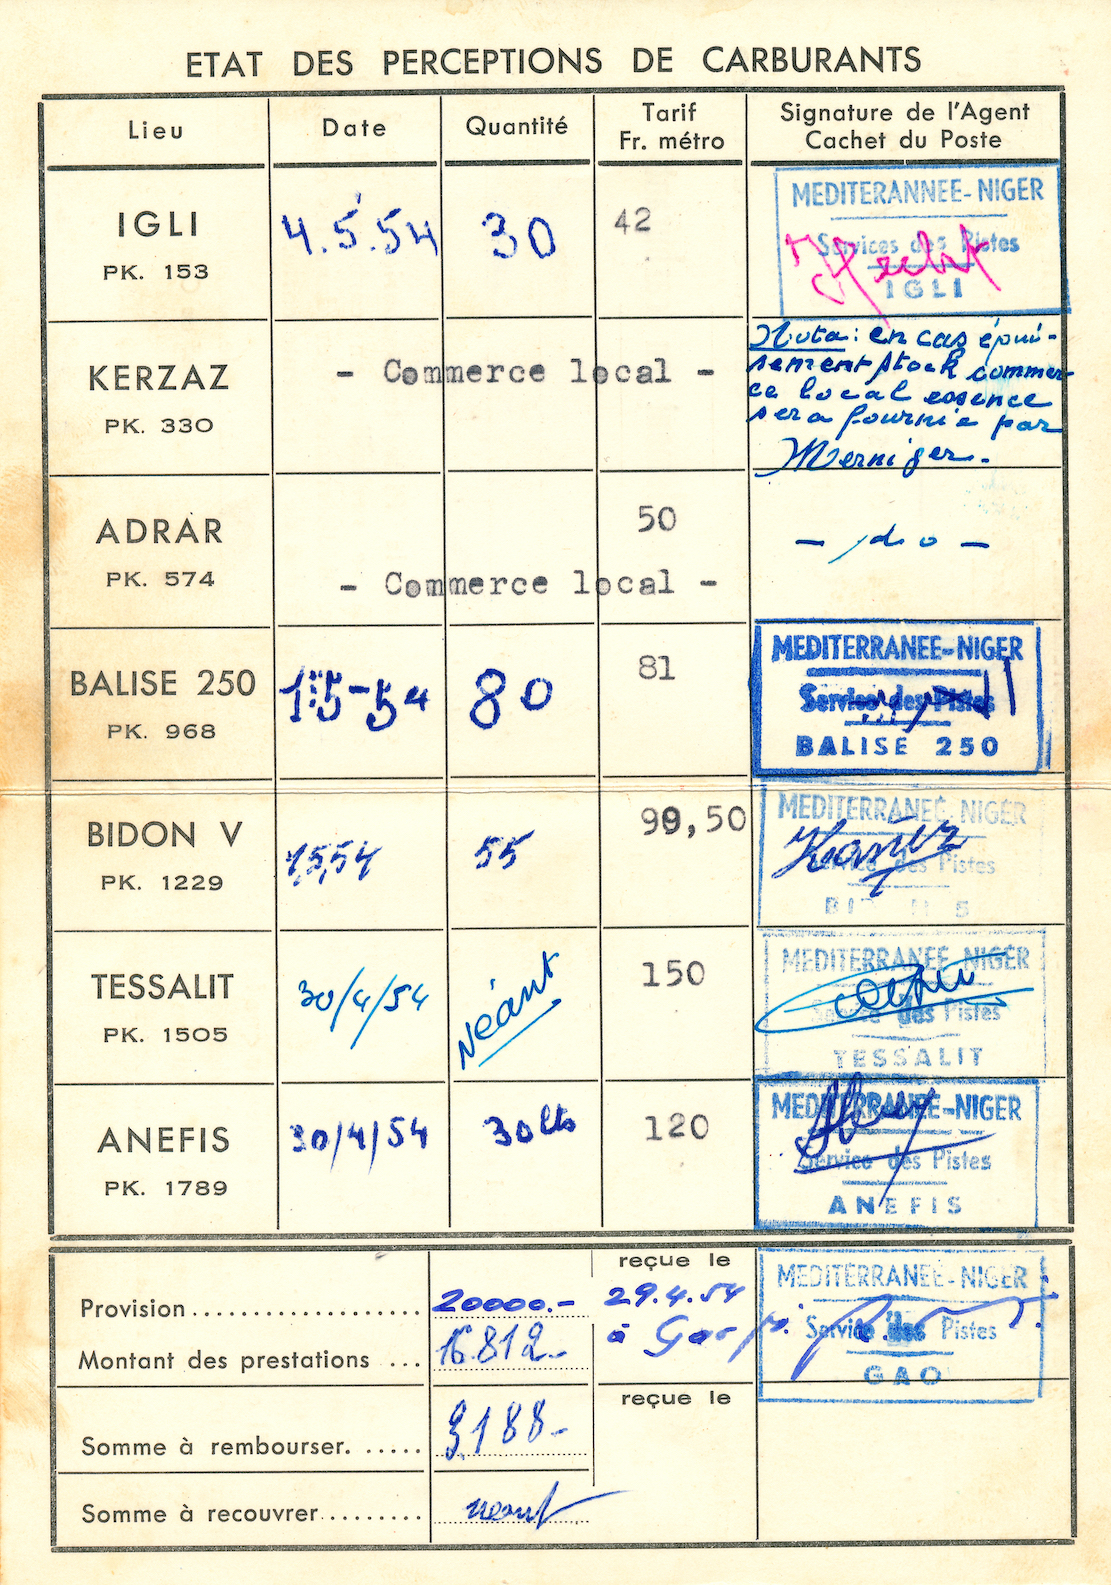 ETAT DES PERCEPTIONS DE CARBURANTS
Lieu Date Quantité Tarif Fr. métro Signature de l'Agent Cachet du Poste
IGLI
PK. 153
4.5.54 30 42
MEDITERANNEE-NIGER
Services des Pistes
IGLI
KERZAZ
PK. 330
- Commerce local -
Nota: en cas épui-
sement stock commer-
ce local essence
sera fournie par
Merniger.
ADRAR
PK. 574
50
- Commerce local -
- do -
BALISE 250
PK. 968
1-5-54 80 81
MEDITERRANEE-NIGER
Service des Pistes
BALISE 250
BIDON V
PK. 1229
1,5,54 55 99,50
MEDITERRANEE NIGER
Service des Pistes
TESSALIT
PK. 1505
30/4/54 Néant 150
MEDITERRANEE NIGER
Service des Pistes
TESSALIT
ANEFIS
PK. 1789
30/4/54 30 lts 120
MEDITERRANEE-NIGER
Service des Pistes
ANEFIS
Provision.................... 20000.-
reçue le
29.4.54
à Gao
MEDITERRANEE-NIGER
Service des Pistes
GAO
Montant des prestations ... 16.812.-
Somme à rembourser. ..... 3.188-
reçue le
Somme à recouvrer......... néant